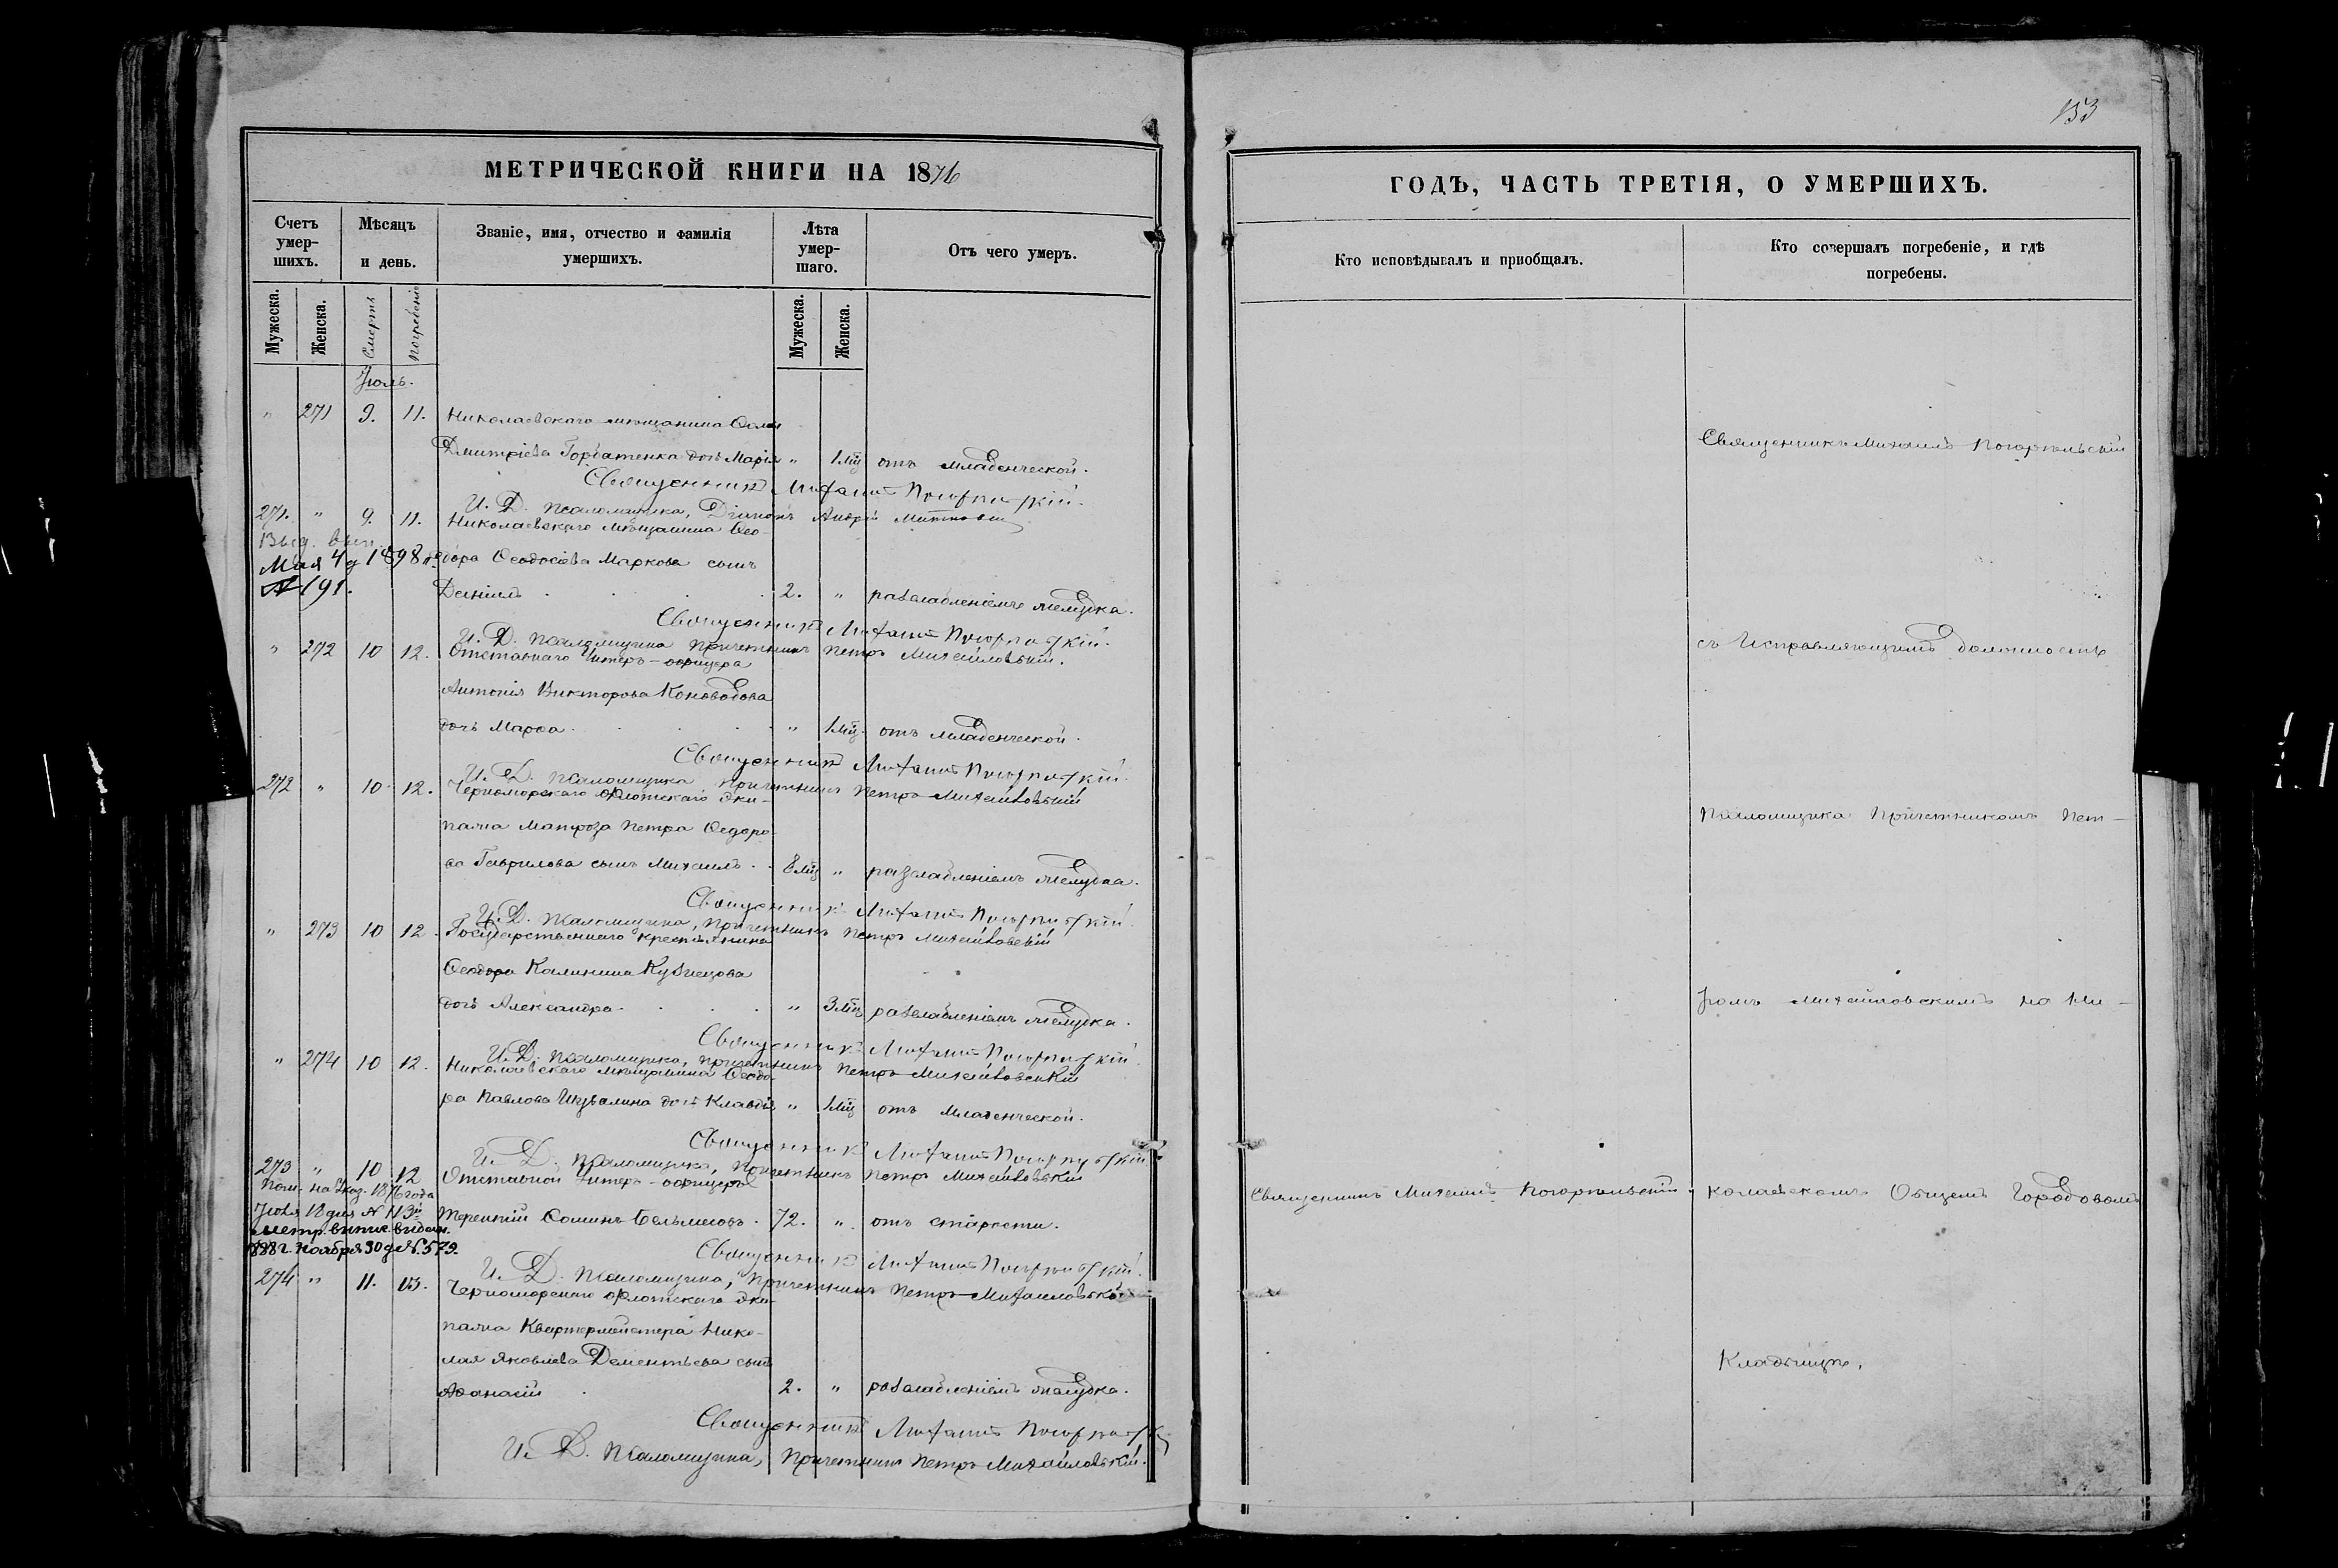 МЕТРИЧЕСКОЙ КНИГИ НА 1876
Счетъ умер-шихъ.
Мѣсяцъ и день.
Званіе, имя, отчество и фамилія умершихъ.
Лѣта умер-шаго.
Отъ чего умеръ.
Мужеска.
Женска.
Смерти
Погребенія
Мужеска.
Женска.
Іюль.
" 271 9. 11. Николаевскаго мѣщанина
Дмитріева Горбатенка дочь Марія " 1 мц отъ младенческой.
Священникъ Михаилъ Погорѣльскій.
И. Д. Псаломщика, Діаконъ Андрей
271. " 9. 11. Николаевскаго мѣщанина Ѳео-
Выд. вып.
Мая 4 д 1898 г.
дора Ѳеодосіева Маркова сынъ
№ 191.
Даніилъ 2. " разслабленіемъ желудка.
Священникъ Михаилъ Погорѣльскій.
И. Д. Псаломщика Причетникъ Петръ Михайловскій.
" 272 10 12. Отставнаго Унтеръ-офицера
Антонія Викторова Коноводова
дочь Марѳа " 1 мц. отъ младенческой.
Священникъ Михаилъ Погорѣльскій.
И. Д. Псаломщика Причетникъ Петръ Михайловскій
272 " 10 12. Черноморскаго флотскаго эки-
пажа Матроза Петра Ѳедоро-
ва Гаврилова сынъ Михаилъ 8 мц " разслабленіемъ желудка.
Священникъ Михаилъ Погорѣльскій.
И. Д. Псаломщика, Причетникъ Петръ Михайловскій
" 273 10 12. Государственнаго крестьянина
Ѳеодора Калинина Кузнецова
дочь Александра. " 3 мц разслабленіемъ желудка.
Священникъ Михаилъ Погорѣльскій.
И. Д. Псаломщика, Причетникъ Петръ Михайловскій
" 274 10 12. Николаевскаго мѣщанина Ѳеодо-
ра Павлова дочь Клавдія " 1 мц отъ младенческой.
Священникъ Михаилъ Погорѣльскій
И. Д. Псаломщика, Причетникъ Петръ Михайловскій
273 " 10 12 Отставной Унтеръ-офицеръ
на Указ. 1876 года
Іюля 18 дня № 113й
Терентій 72. " отъ старости.
метр. выпис. выдан.
1888 г. Ноября 30 д № 579.
Священникъ Михаилъ Погорѣльскій.
И. Д. Псаломщика, Причетникъ Петръ Михайловскій
274 " 11. 13. Черноморскаго флотскаго эки-
пажа Квартермейстера Нико-
лая Яковлева Дементьева сынъ
Аѳанасій 2. " разслабленіемъ желудка.
Священникъ Михаилъ Погорѣльскій
И. Д. Псаломщика, Причетникъ Петръ Михайловскій.
153
ГОДЪ, ЧАСТЬ ТРЕТІЯ, О УМЕРШИХЪ.
Кто исповѣдывалъ и пріобщалъ.
Кто совершалъ погребеніе, и гдѣ погребены.
Священникъ Михаилъ Погорѣльскій
съ Исправляющимъ должность
Псаломщика Причетникомъ Пет-
ромъ Михайловскимъ на Ни-
Священникъ Михаилъ Погорѣльскій.
колаевскомъ Общемъ Городовомъ
Кладбищѣ.